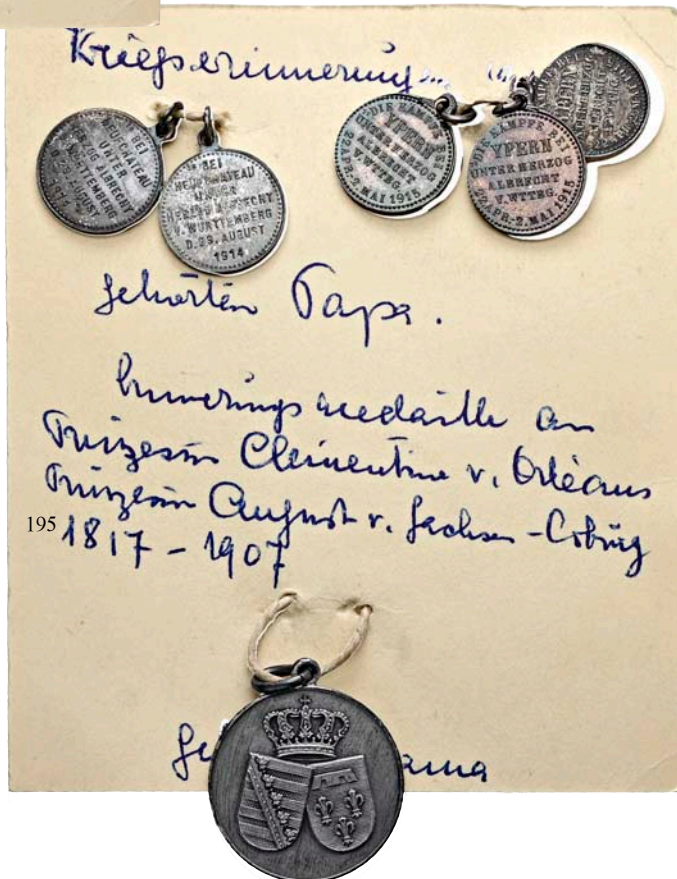 Kriegserinnerung
BEI
NEUFCHATEAU
UNTER
HERZOG ALBRECHT
V. WÜRTTEMBERG
D. 29. AUGUST
BEI
NEUFCHATEAU
UNTER
HERZOG ALBRECHT
V. WÜRTTEMBERG
D. 29. AUGUST
1914
YPERN
UNTER HERZOG
ALBRECHT
V. WTTBG.
2. MAI 1915
D. KÄMPFE BEI
YPERN
UNTER HERZOG
ALBRECHT
V. WTTBG.
22. APR.-2. MAI 1915
YPERN
gehörten Papa.
Erinnerungsmedaille an
Prinzessin Clementine v. Orléans
Prinzessin August v. Sachsen-Coburg
195
1817 - 1907